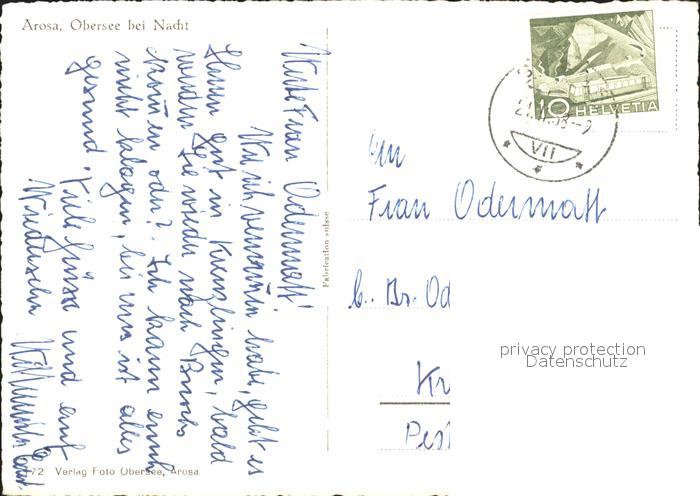 Arosa, Obersee bei Nacht
Frau Odermatt!
Wie ich vernommen habe, geht es
Ihnen gut in Kreuzlingen, bald
werden Sie wieder nach Buochs
kommen oder? Ich kann auch
nicht klagen, bei uns ist alles
gesund. Viele Grüsse und auf
Wiedersehn
172 Verlag Foto Obersee, Arosa
Fabrication suisse
10 HELVETIA
VII
Frau Odermatt
b. Br. Od
Kr
Pest
privacy protection
Datenschutz